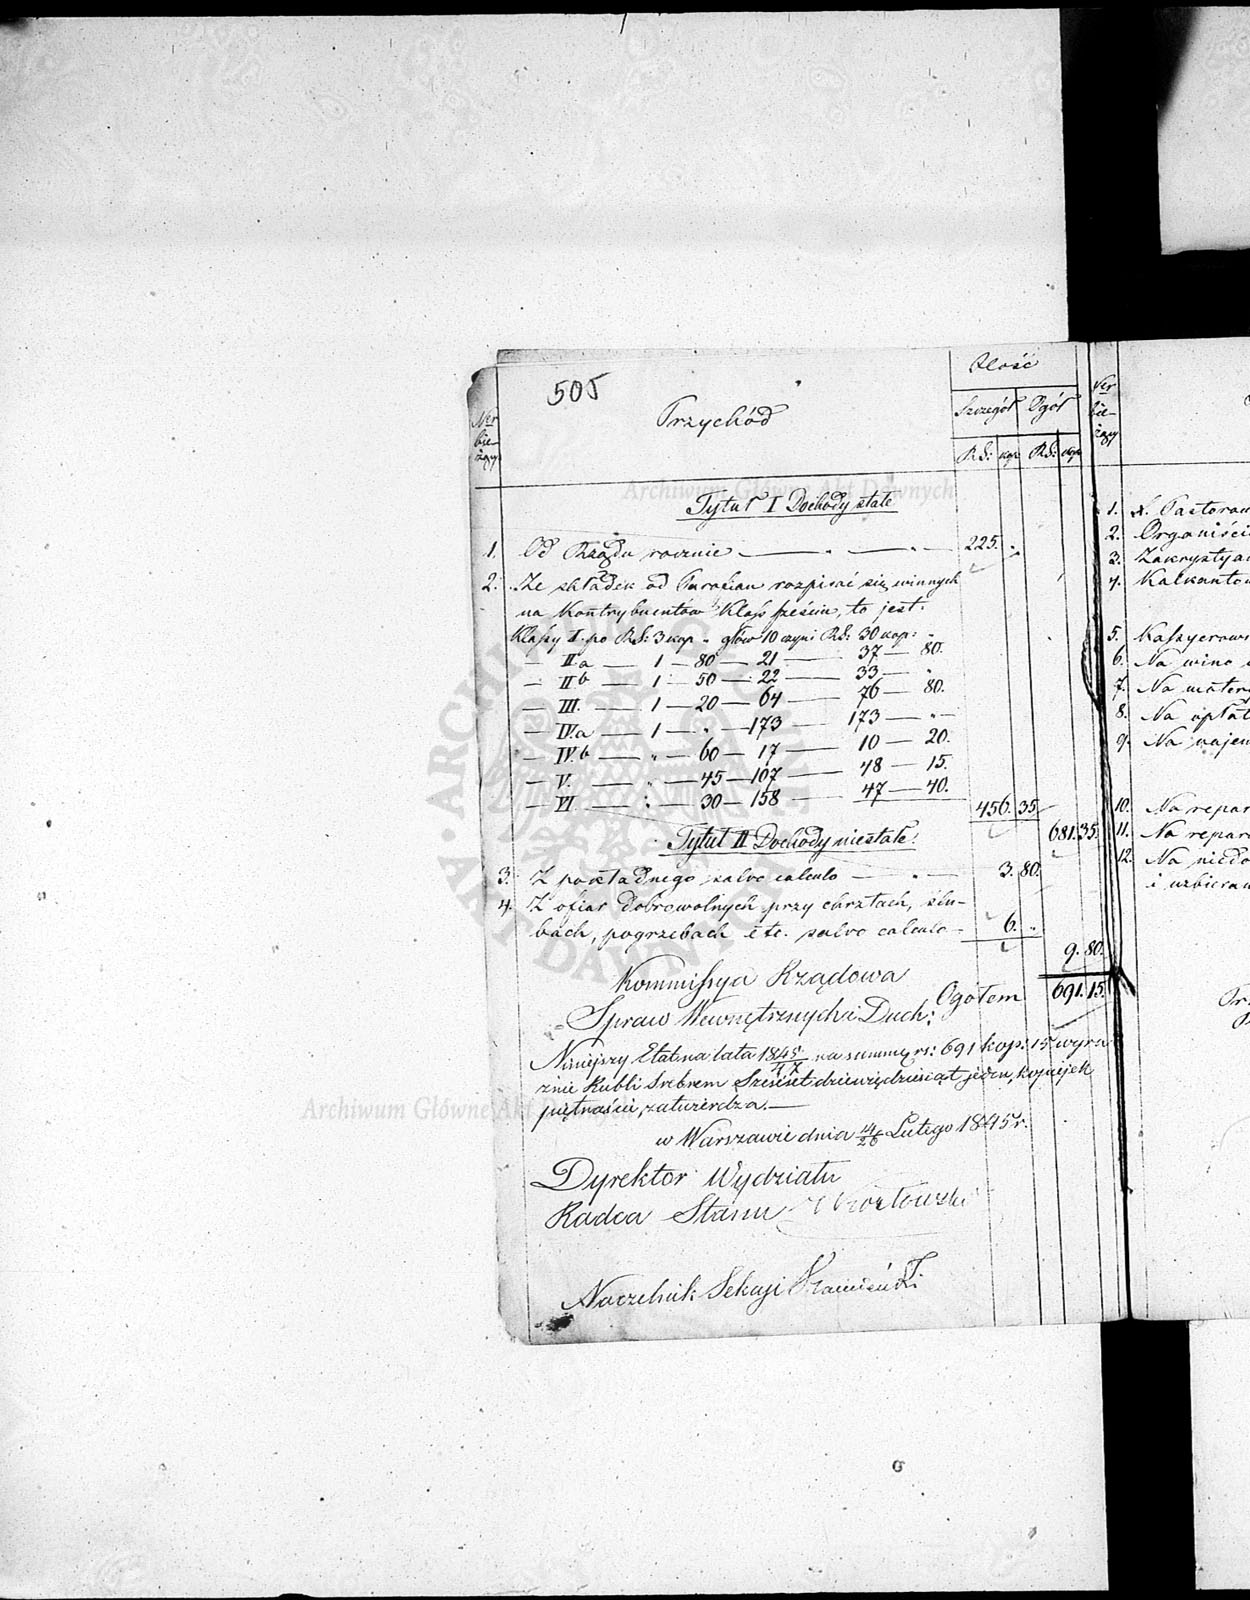 505
Ner
bie-
żący
Przychód
Ilość
Szczegół Ogół
RS: kop RS: kop
Tytuł I Dochody stałe
1. Od Rządu rocznie — „ — „ — 225. „
2. Ze składek od Parafian rozpisać się winnych
na Kontrybuentów Klass sześciu, to jest.
Klassy I. po RS: 3 kop „ głów 10 czyni RS: 30 kop: „
— II a — 1 — 80 — 21 — 37 — 80.
— II b — 1 — 50 — 22 — 33 — „
— III. — 1 — 20 — 64 — 76 — 80.
— IV. a — 1 — „ — 173 — 173 — „ —
— IV. b — „ — 60 — 17 — 10 — 20.
— V. — „ — 45 — 107 — 48 — 15.
— VI — „ — 30 — 158 — 47 — 40.
456. 35.
681. 35.
Tytuł II Dochody niestałe.
3. Z pokładnego salvo calculo — „ — 3. 80.
4. Z ofiar dobrowolnych przy chrztach, ślu-
bach, pogrzebach etc. salvo calculo — 6. „
9. 80.
Ogółem 691. 15.
Kommissya Rządowa
Spraw Wewnętrznych i Duch:
Niniejszy Etat na lata 1845/47 na summę rs: 691 kop: 15 wyra
znie Rubli Srebrem Sześćset dziewięćdziesiąt jeden, kopiejek
piętnaście, zatwierdza. —
w Warszawie dnia 14/26 Lutego 1845 r.
Dyrektor Wydziału
Radca Stanu
Naczelnik Sekcji
Ner
bie-
żący
1. X. Pastorow
2. Organiście
3. Zakrystya
4. Kalkantow
5. Kassyerow
6. Na wino
7. Na mater
8. Na opłat
9. Na najem
10. Na repar
11. Na repar
12. Na niedo
i uzbiera
Archiwum Główne Akt Dawnych
Archiwum Główne Akt Dawnych
ARCHIWUM GŁÓWNE AKT DAWNYCH